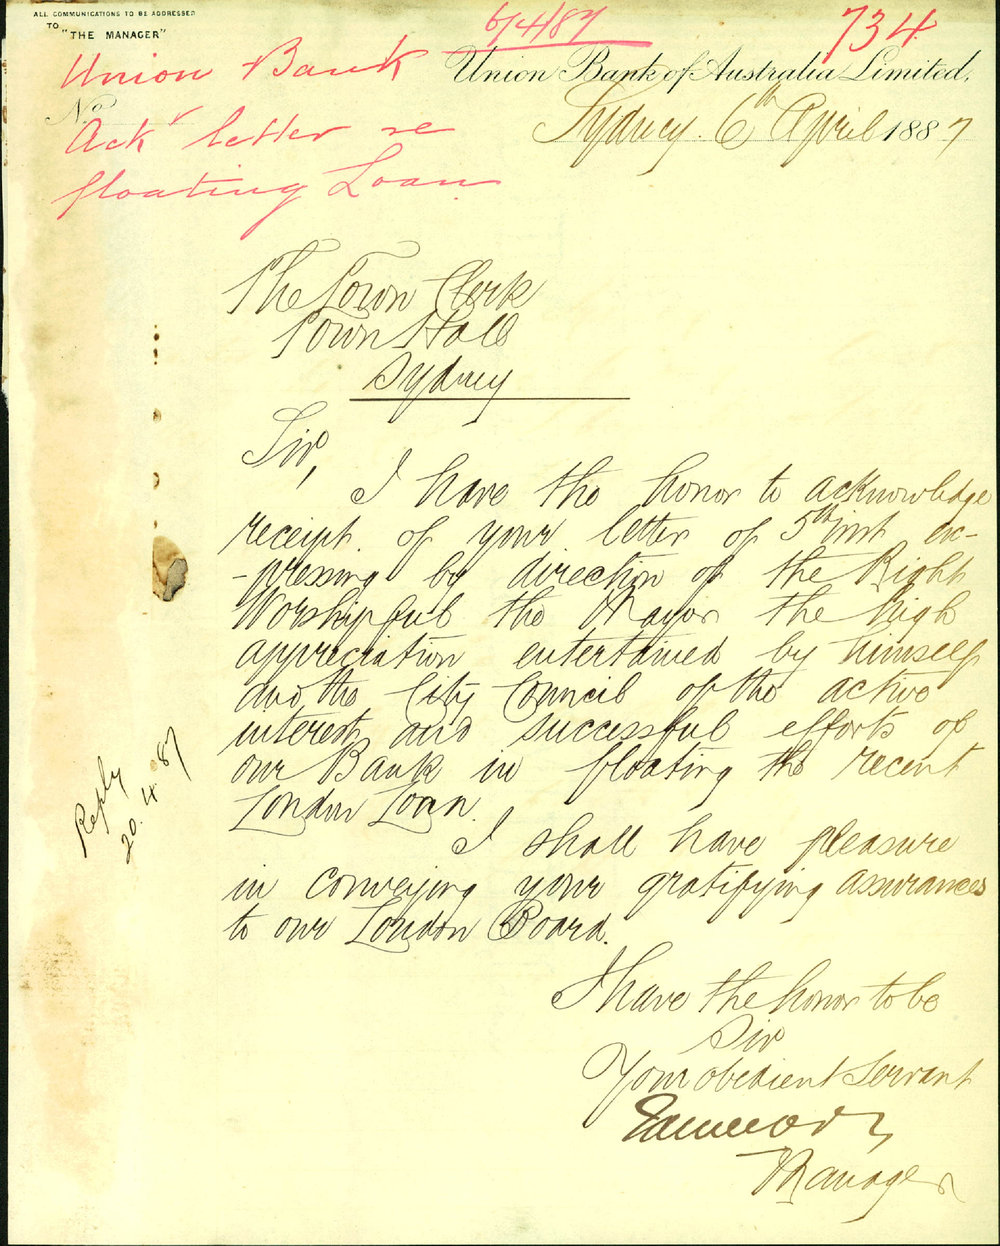 ALL COMMUNICATIONS TO BE ADDRESSED
TO
"THE MANAGER"
6/4/87
734
Union Bank
Union Bank of Australia Limited,
No
Ackr letter re
floating Loan
Sydney. 6th April 1887
The Town Clerk
Town Hall
Sydney
Sir,
I have the honor to acknowledge
receipt of your letter of 5th inst ex-
-pressing by direction of the Right
Worshipful the Mayor the high
appreciation entertained by himself
and the City Council of the active
interest and successful efforts of
our Bank in floating the recent
London Loan.
I shall have pleasure
in conveying your gratifying assurances
to our London Board.
Reply
20.4.87
I have the honor to be
Sir
Your obedient Servant
Manager